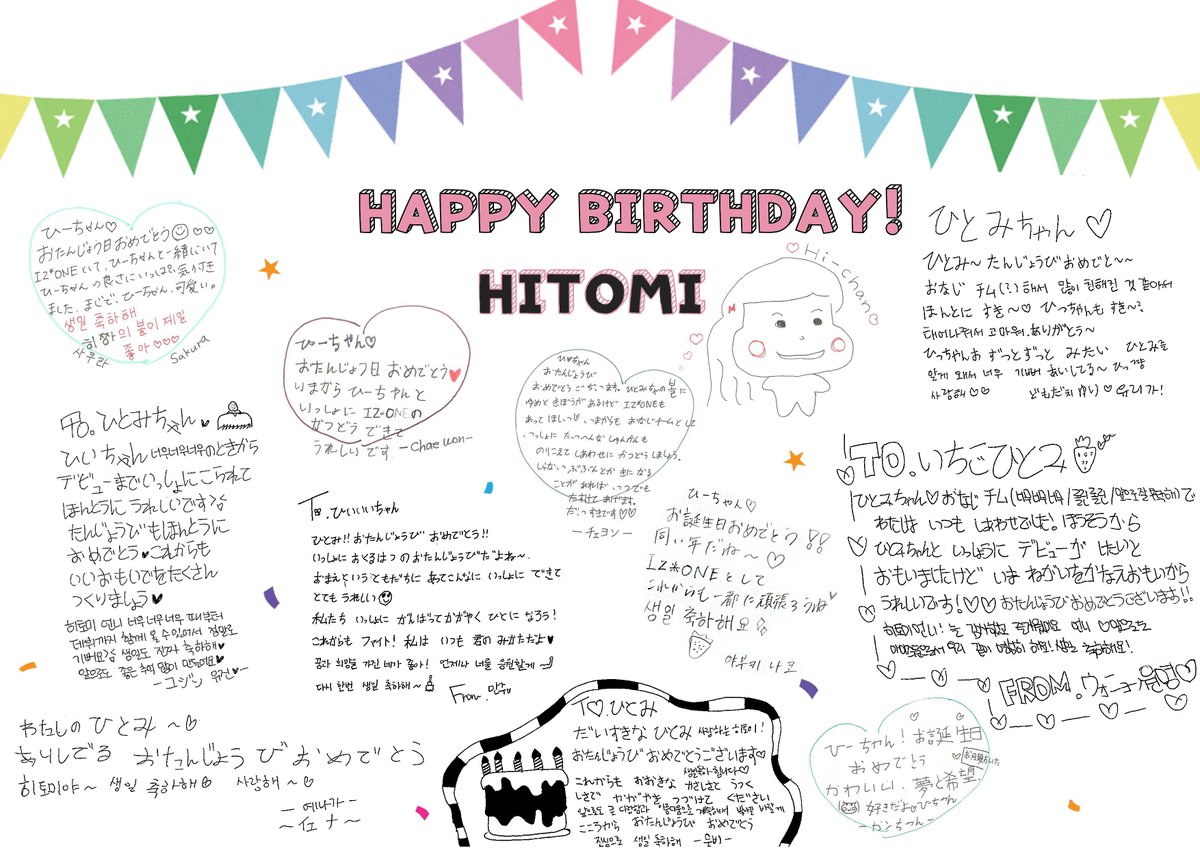 HAPPY BIRTHDAY!
HITOMI
ひーちゃん♡
おたんじょう日おめでとう
IZ*ONEにいて、ひーちゃんと一緒にいて
ひーちゃんの良さにいっぱい気付き
ました。まじで、ひーちゃん、可愛い。
생일 축하해
히짱의 볼이 제일
좋아♡♡♡
사쿠라
Sakura
ひーちゃん♡
おたんじょう日 おめでとう
いまから ひーちゃんと
いっしょに IZ*ONEの
かつどう できて
うれしいです
-Chaewon-
ひぃちゃん
おたんじょうび
おめでとうございます。ひとみちゃんの볼に
ゆめと きぼうがあるけど IZ*ONEも
おなじチームとして
しあわせに かつどうしましょう。
ことが あれば、いつでも
たすけて あげます。
だいすきです♡♡
-チェヨン-
Hi-chan
ひとみちゃん ♡
ひとみ~ たんじょうび おめでと~~
おなじ チム(?)해서 많이 친해진 것 같아서
ほんとに すき~♡ ひっちゃんも すき~?
태어나줘서 고마워. ありがとう~
ひっちゃんお ずっとずっと みたい ひとみを
알게 돼서 너무 기뻐 あいしてる~
사랑해♡♡
유리가!
To.ひとみちゃん
ひいちゃん 너무너무너무のときから
デビューまでいっしょにこられて
ほんとうに うれしいです
たんじょうびもほんとうに
おめでとう♥これからも
いいおもいでをたくさん
つくりましょう♥
히토미 언니 너무너무너무 때부터
데뷔까지 함께 올 수 있어서 정말로
기뻐요 생일도 진짜 축하해♥
앞으로도 좋은 추억 많이 만들어요♥
-ユジン 유진-
To.ひいいいちゃん
ひとみ!! おたんじょうび おめでとう!!
いっしょに おくる はつの おたんじょうびだよね~.
いっしょに できて
とても うれしい
私たち いっしょに がんばって かがやく ひとに なろう!
これからも ファイト! 私は いつも 君の みかただよ♡
꿈과 희망을 가진 네가 좋아! 언제나 너를 응원할게
다시 한번 생일 축하해~
From. 민주
ひーちゃん♡
お誕生日おめでとう!!
同い年だね~♡
IZ*ONEとして
これからも一緒に頑張ろうね
생일 축하해요
야부키 나코
TO.いちごひとみ
わたしは いつも しあわせでした。ほうそうから
ひとみちゃんと いっしょうに デビューが したいと
おもいましたけど いま ねがいをかなえおもいから
うれしいです!♡♡ おたんじょうびおめでとうございます!!
FROM.ウォニョン원영
わたしの ひとみ ~♡
ありしでる おたんじょう び おめでとう
히토미야~ 생일 축하해♡ 사랑해~♡
- 예나가-
~イェナ~
To.ひとみ
だいすきな ひとみ 사랑하는 히토미!
おたんじょうび おめでとうございます♡
생일축하합니다♡
これからも おおきな やさしさと うつく
しさで かがやき つづけて ください
こころから おたんじょうび おめでとう
진심으로 생일 축하해 -은비-
ひーちゃん!お誕生日
おめでとう
かわいい、夢と希望
好きだよ♡ひーちゃん
-カンちゃん-